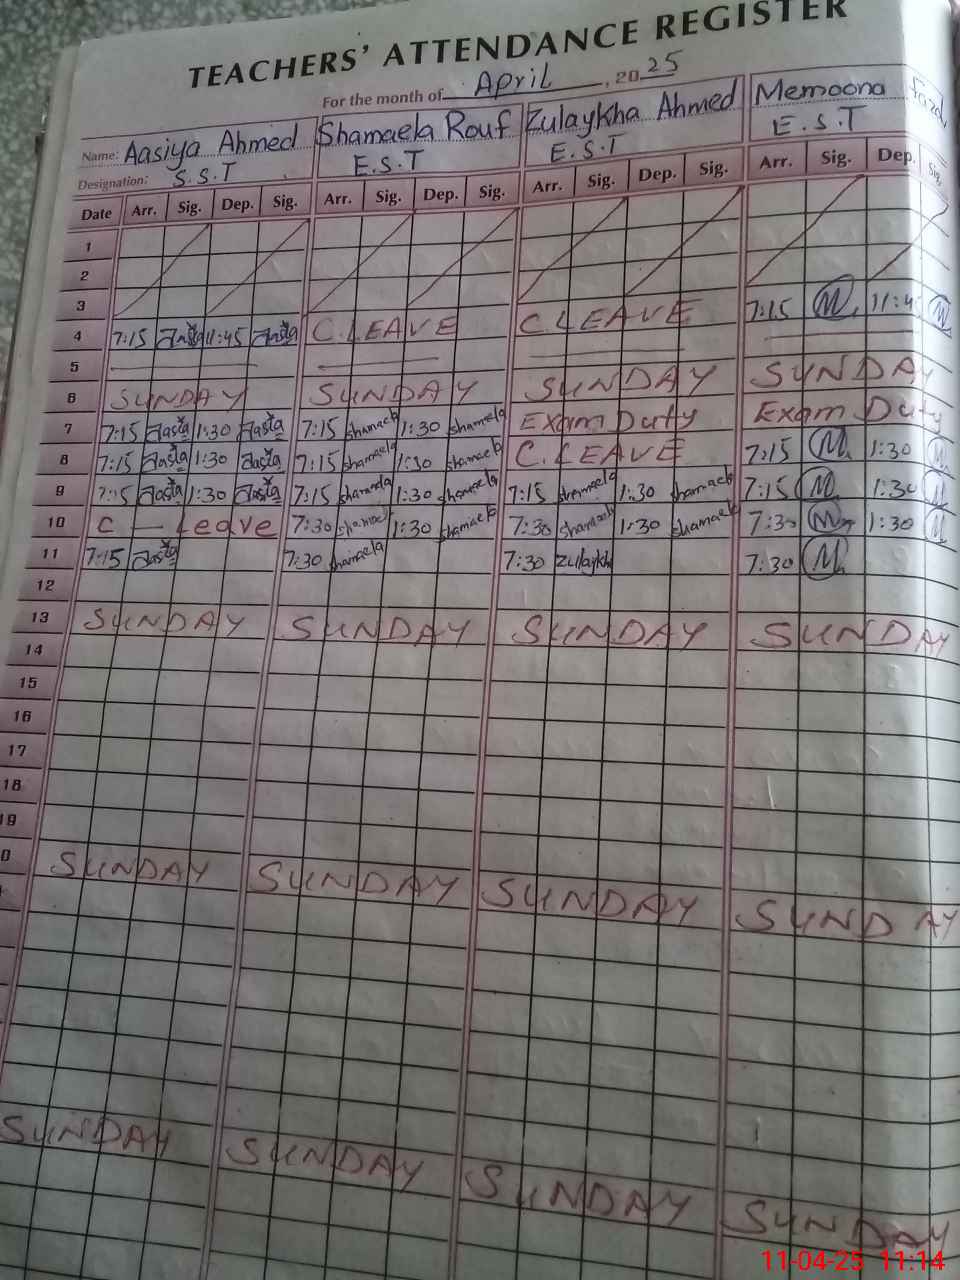 TEACHERS' ATTENDANCE REGISTER
For the month of April, 2025
Name: Aasiya Ahmed Shamaela Rouf Zulaykha Ahmed Memoona
Designation: S.S.T E.S.T E.S.T E.S.T
Date Arr. Sig. Dep. Sig. Arr. Sig. Dep. Sig. Arr. Sig. Dep. Sig. Arr. Sig. Dep. Sig.
1
2
3
4 7:15 11:45 C.LEAVE C.LEAVE 7:15 M 11:45 M
5
6 SUNDAY SUNDAY SUNDAY SUNDAY
7 7:15 1:30 7:15 Shamaela 1:30 Shamaela Exam Duty Exam Duty
8 7:15 1:30 7:15 Shamaela 1:30 Shamaela C.LEAVE 7:15 M 1:30 M
9 7:15 1:30 7:15 Shamaela 1:30 Shamaela 7:15 Shamaela 1:30 Shamaela 7:15 M 1:30 M
10 C - Leave 7:30 Shamaela 1:30 Shamaela 7:30 Shamaela 1:30 Shamaela 7:30 M 1:30 M
11 7:15 7:30 Shamaela 7:30 Zulaykh 7:30 M
12
13 SUNDAY SUNDAY SUNDAY SUNDAY
14
15
16
17
18
19
0 SUNDAY SUNDAY SUNDAY SUNDAY
SUNDAY SUNDAY SUNDAY SUNDAY
11-04-25 11:14